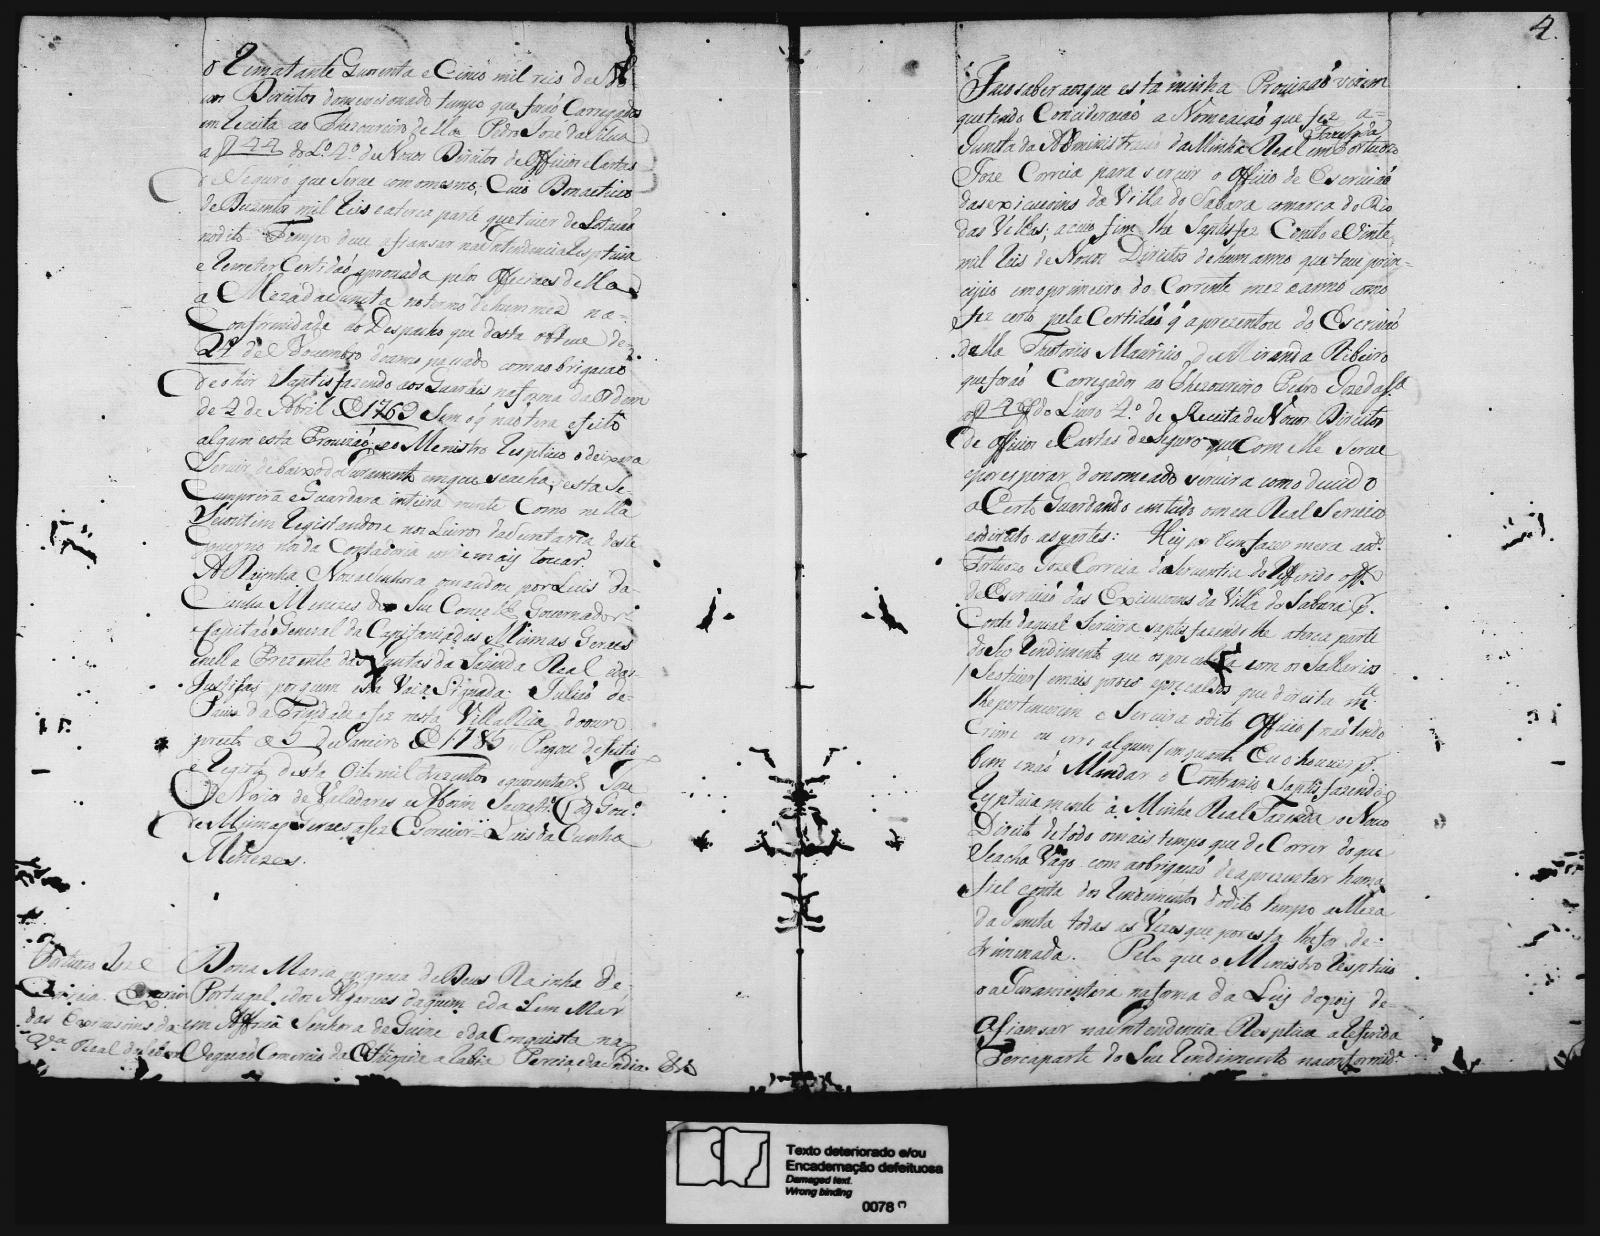 o Rematante Quarenta e Cinco mil reis de No-
vos Direitos do mencionado tempo que forão Carregados
em Receita ao Thezoureiro della Pedro José da Silva
a f 44 do L.º 2.º de Novos Direitos de Officios e Cartas
de Seguro que serve com o mesmo, Cujo Donactivo
de Duzentos mil Reis e a terça parte que tiver de Lotação
no dito Tempo deve afiansar na Intendencia respectiva
e Remeter Certidão aprovada pelos Officiaes della
a Meza da Junta no termo de hum mez na
Conformidade do Despacho que desta obteve de
24 de Novembro do anno passado com a obrigação
de o hir Saptisfazendo aos Quarteis na forma da Ordem
de 2 de Abril de 1769 Sem o q não terá efeito
algum esta Provizão, e o Menistro Resptivo o deixará
Servir debaixo do Juramento em que se acha, e esta Se
Cumprirá e Guardará inteira mente Como nella
Se contem Registandose nos Livros da Secretaria deste
Governo nos da Contadoria e nos mais tocar.
A Raynha Nossa Senhora o mandou por Luis da
Cunha Menezes do Seu Conc.º Governador e
Capitão General da Capitania das Minnas Geraes
e nella Prezidente das Juntas da Fazenda Real e das
Justiças por quem esta Vai aSignada. Julião da
Paiva da Trindade a fez nesta Villa Rica do ouro
preto a 5 de Janeiro de 1785 Pagou de feitio
e Registo desta Oito mil duzentos e quarenta r.s Joze
De Noiva de Valadares e Amorim Secretr.º do Gov.º
de Minnas Geraes a fez Escrever = Luis da Cunha
Menezes.
Fortuozo Joze
Correia Escrivão
das Execussoins da
V.ª Real do Sabará
Dona Maria por graça de Deus Rainha de
Portugal, e dos Algarves daquem, e da Lem Mar
em Affrica Senhora de Guine e da Conquista na-
Vegação Comercio da Ethiopia a Rabia Percia e da India &
4.
Faço saber aos que esta minha Provizão virem
que tendo Concideração a Nomeação que fez a
Junta da Administração da Minha Real Fazenda em Fortuozo
Joze Correia para servir o Officio de Escrivão
das execussoins da Villa do Sabara comarca do Rio
das Velhas; a cujo fim lhe Saptisfez Cento e Vinte
mil Reis de Novos Direitos de hum anno que teve prin-
cipio em o primeiro do Corrente mez e anno como
fez certo pela Certidão q aprezentou do Escrivão
della Theotonio Mauricio de Miranda Ribeiro
que forão Carregados ao Thezoureiro Pedro Joze da S.ª
a f 48 do Livro 2.º de Receita de Novos Direitos
de Officios e Cartas de Seguro que Com elle Serve
e por esperar do nomeado servirá como devido
a Certo Guardando em tudo o meu Real Serviço
e o direito as partes: Hey por bem fazer merce ao d.º
Fortuozo Joze Correia da Serventia do Referido off.º
de Escrivão das Execussoins da Villa do Sabara p.
Conta da qual Servira saptisfazendo lhe a terça parte
do Seu Rendimento que os precalsos com os Sallarios
/ Se o tiver / e mais proes e precalsos que direita m.te
lhe pertencerem e Servirá o dito Officio / não tendo
Crime ou erro algum / em quanto Eu o houver p.
bem e não Mandar o Contrario Saptisfazendo
Resptivamente a Minha Real Fazenda o Novo
Direito de todo o mais tempo que de Correr do que
Se acha Vago com a obrigação de aprezentar huma
fiel conta dos Rendimentos do dito tempo a Meza
da Junta todas as Vezes que por esta lhe for de-
treminada. Pelo que o Ministro Resptivo
o a Juramentará na forma da Ley depois de
afiansar na Intendencia Resptiva a Referida
Terça parte do Seu Rendimento na conformid.e
Texto deteriorado e/ou
Encadernação defeituosa
Damaged text.
Wrong binding
0078